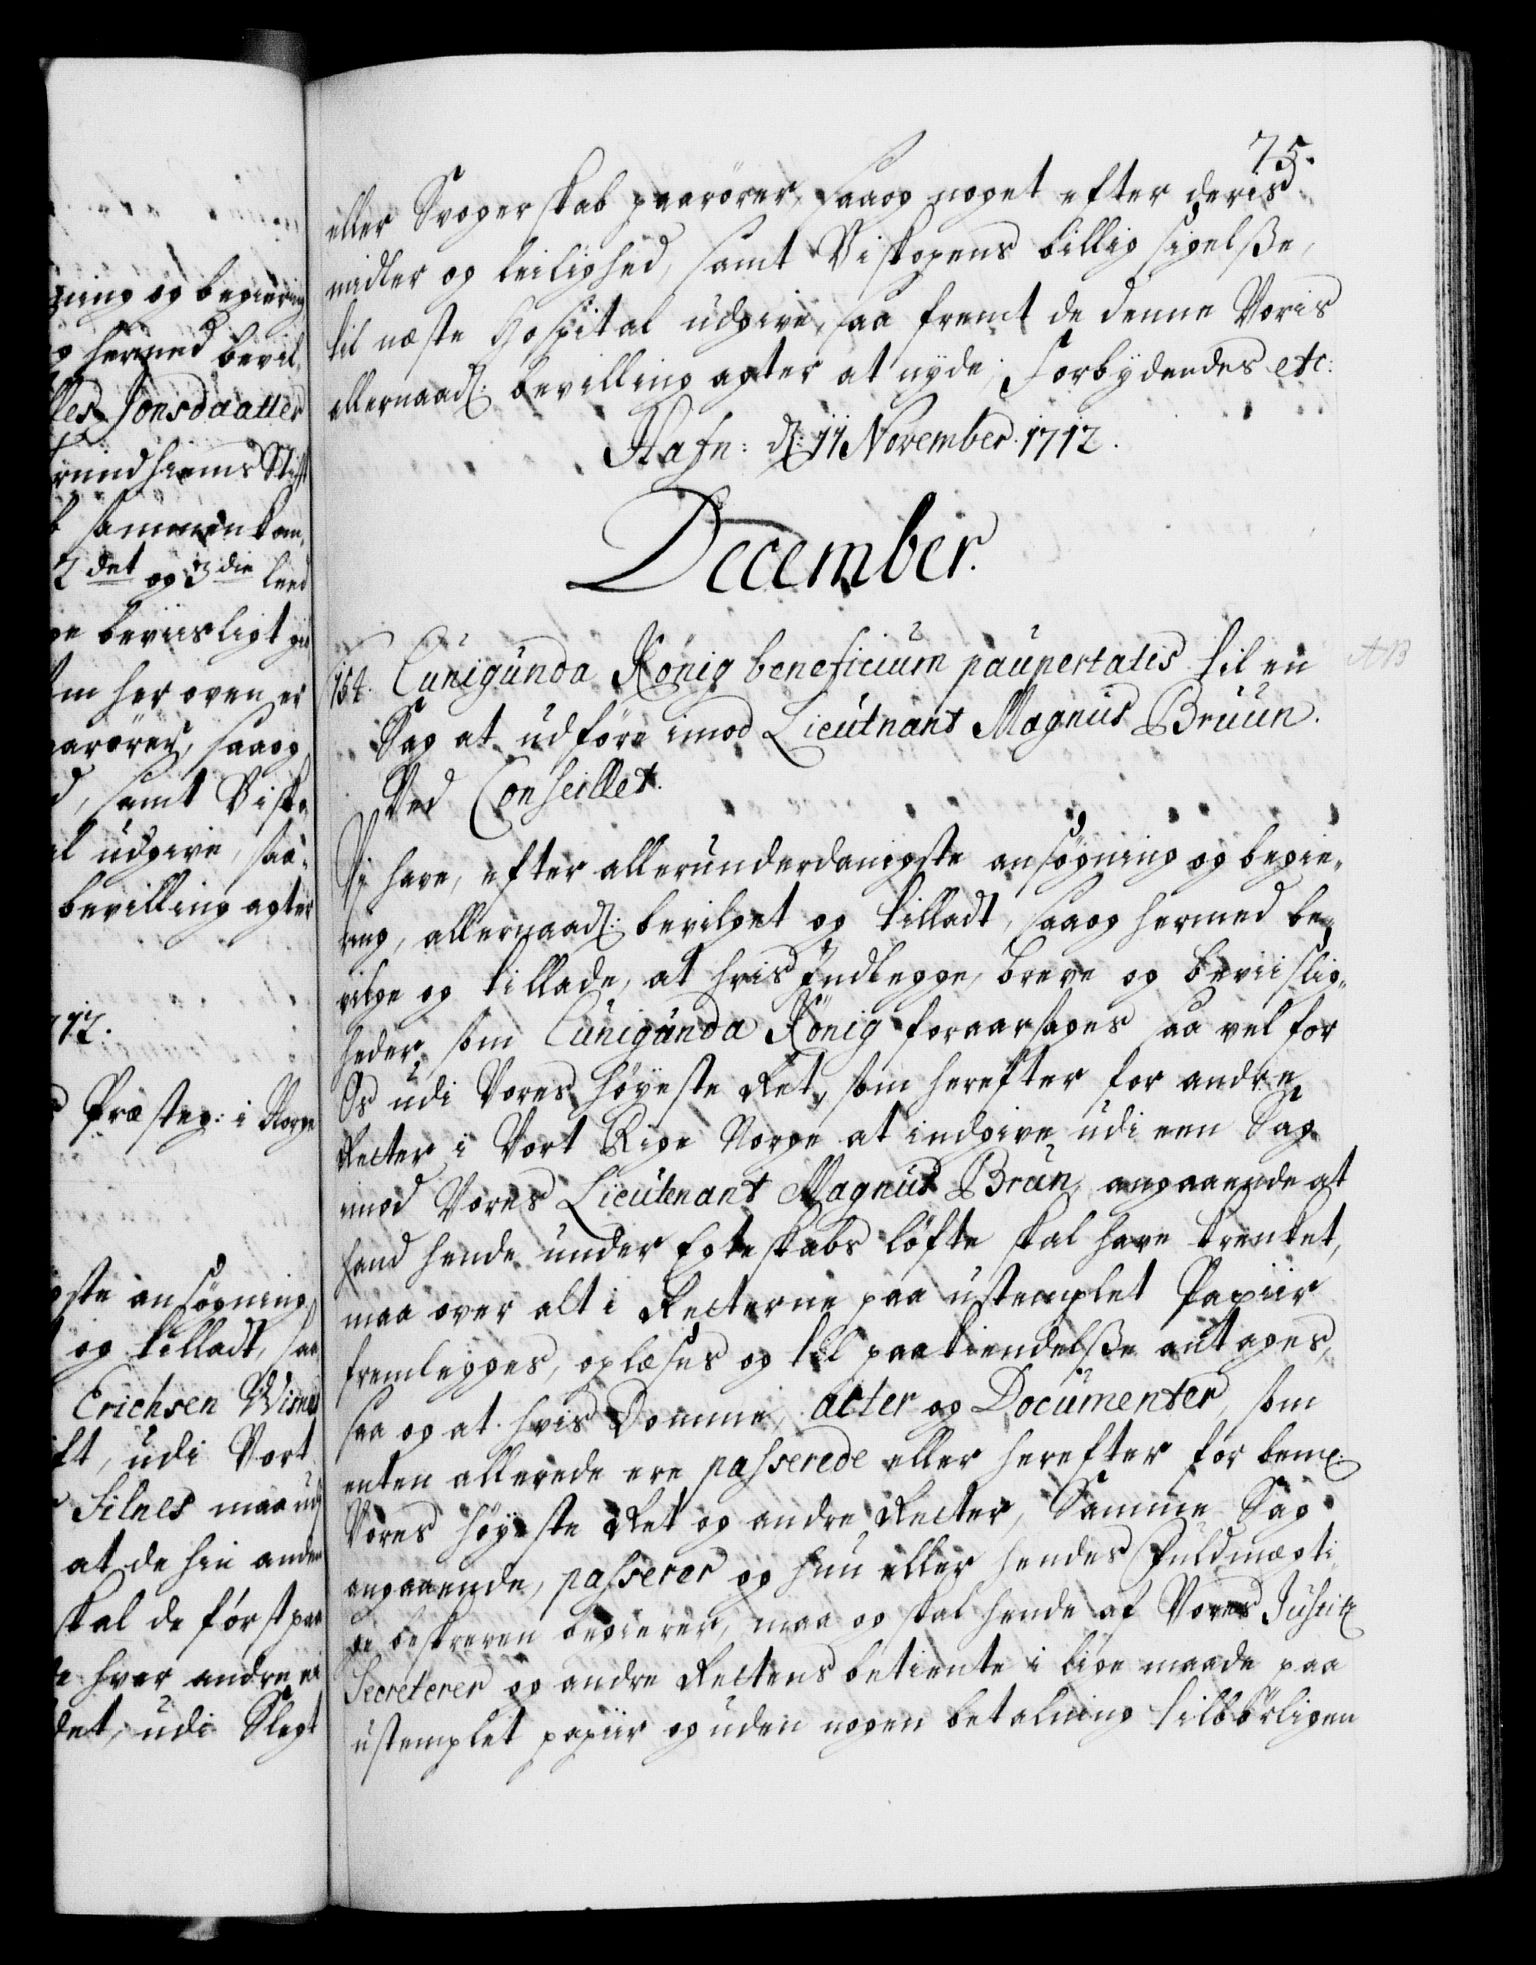 75.
eller Svogerskab paarörer, saaog noget efter deris
midler og leilighed, samt Biskopens billig sigelße,
til næste Hospital udgive, saa fremt de denne Voris
allernaad: bevilling agter at nyde; Forbydendes etc:
Hafn: d: 11 November. 1712.
December.
154. Cunigunda König beneficium paupertatis til en
Sag at udföre imod Lieutnant Magnus Bruun.
Ved Conseillet.
Vi have, efter allerunderdanigste ansögning og begie,,
ring, allernaad: bevilget og tilladt, saaog hermed be,,
vilge og tillade, at hvis Indlegge, breve og beviislig,,
heder, som Cunigunda König foraarsages saa vel for
Os udi Vores höyeste Ret, som herefter for andre
Retter i Vort Rige Norge at indgive udi een Sag
imod Vores Lieutenant Magnus Brun, angaaende at
hand hende under Egteskabs löfte skal have krenket,
maa over alt i Retterne paa ustemplet Papiir
fremlegges, oplæses og til paakiendelße antages,
saa og at hvis Domme, acter og Documenter, som
enten allerede ere passerede eller herefter for bem:
Vores höyeste Ret og andre Retter, Samme Sag
angaaende, passerer og hun eller hendes Fuldmægti,,
ge beskreven begierer, maa og skal hende af Vores Justitz
Secreterer og andre Rettens betiente i lige maade paa
ustemplet papiir og uden nogen betalning tilbörligen
ning og begiering
hermed bevil,,
Jonsdaatter
rundhiems Stift
sammenkom,,
2det og 3die leed
beviisligt
som her oven er
paarörer, saaog
samt Bisko,,
udgive, saa,,
bevilling agter
Præsteg: i Norge
ansögning
og tilladt, saa
Erichsen
udi Vort
Silnes maa
at de hin anden
skal de först paa
hver andre
det, udi Slegt